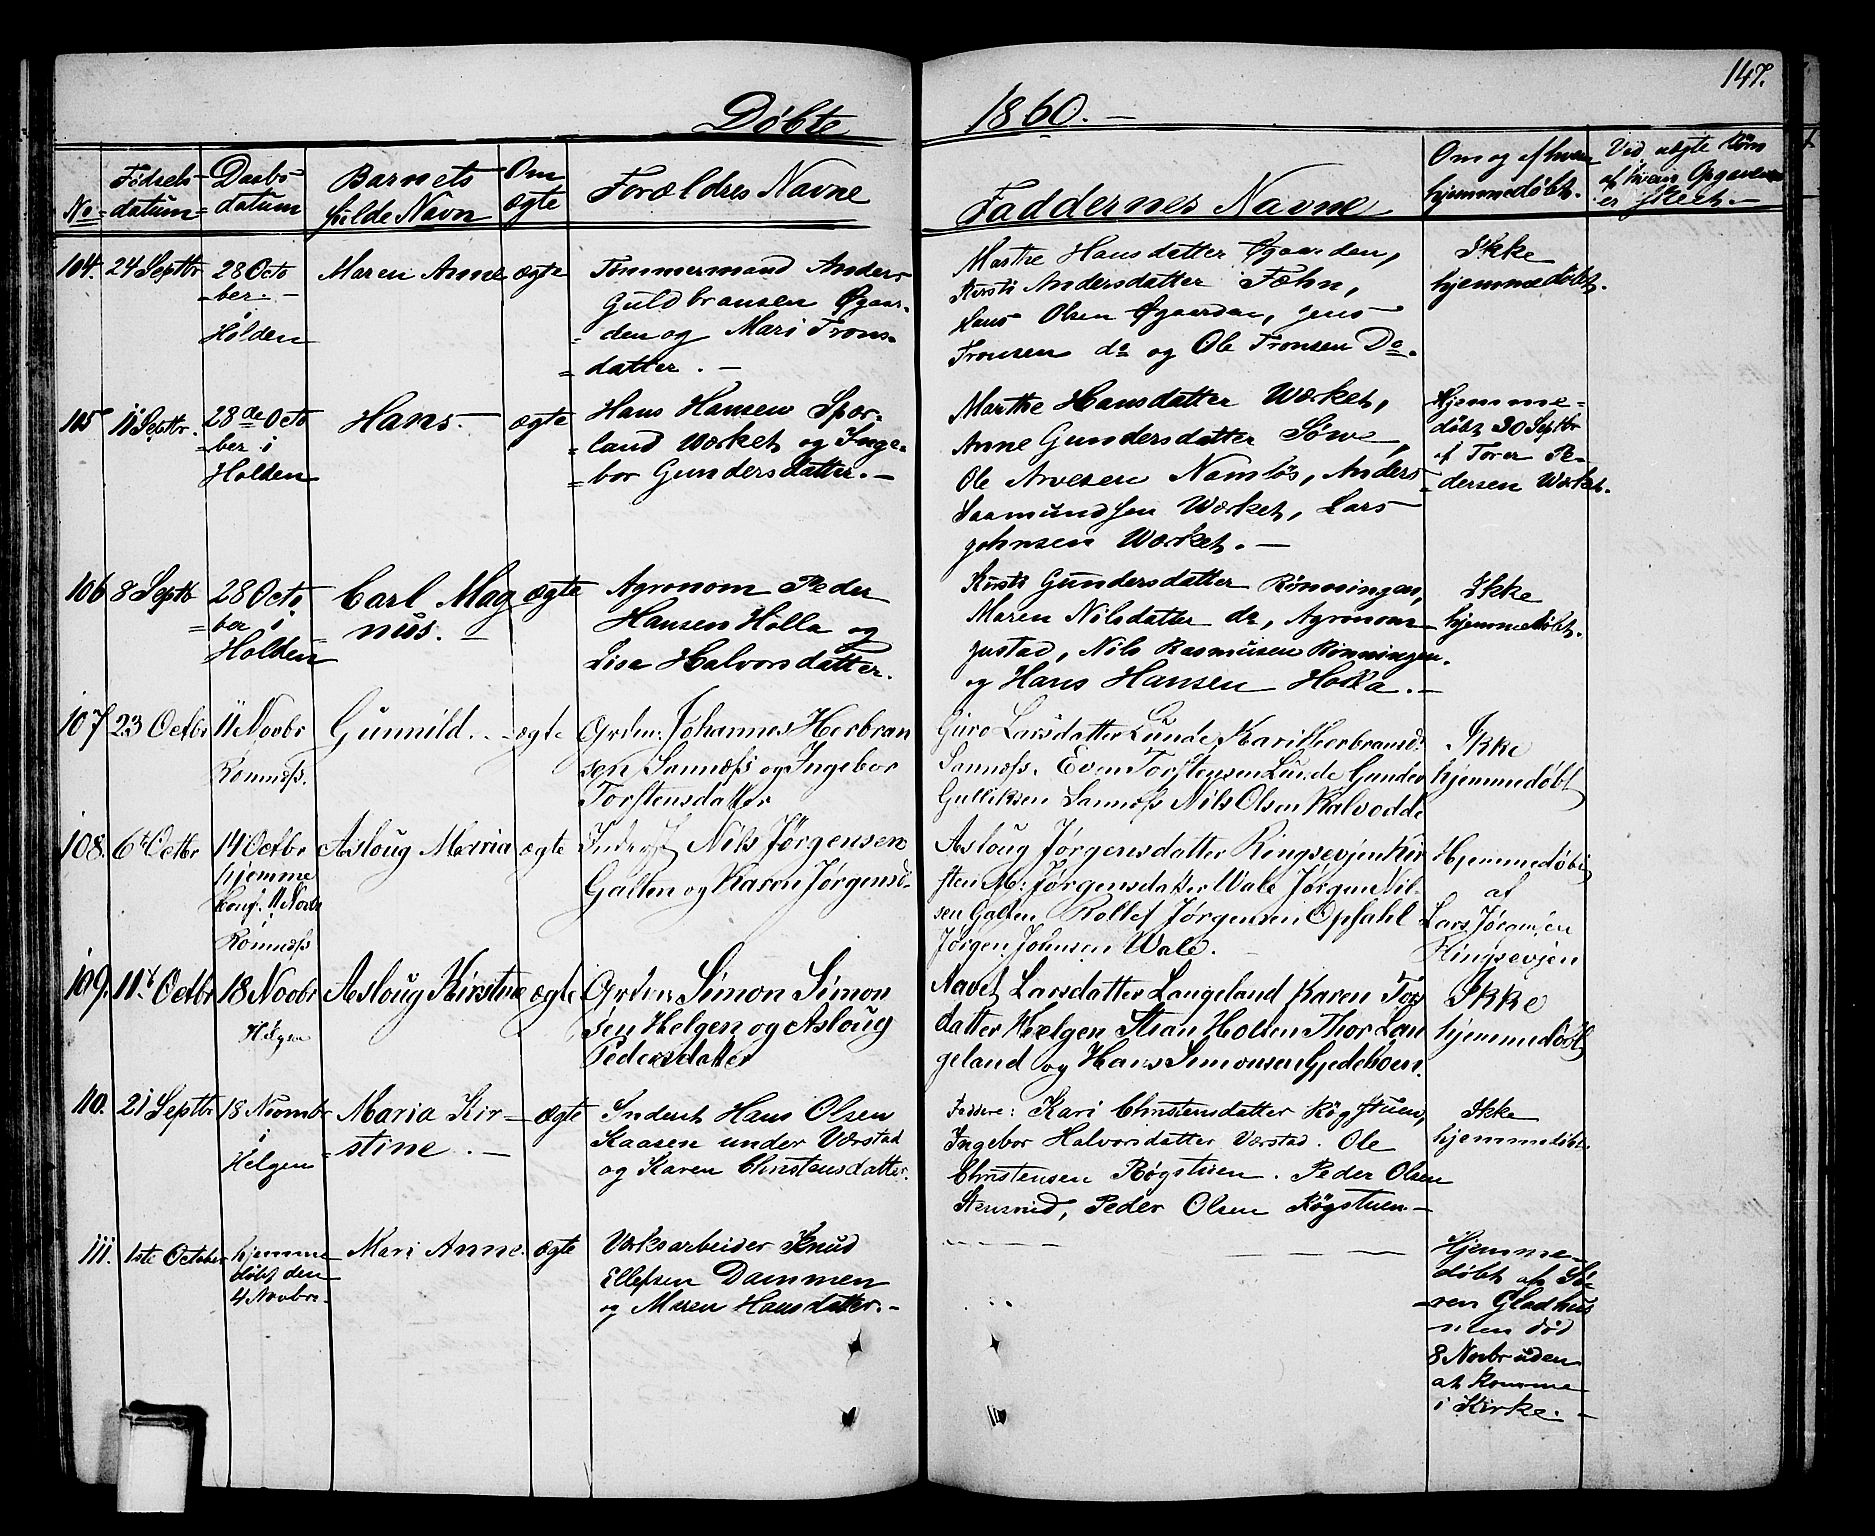 147.
Døbte 1860. —
No. Fødsels datum Daabs datum Barnets fulde Navn Om ægte Forældres Navne Faddernes Navne Om og af hvem hjemmedøbt. Ved uægte Børn af hvem Opgaven er skeet. —
104. 24 Septbr 28 Octo
ber. —
Holden
Maren Anne ægte
Tømmermand Anders
Guldbransen Øgaar-
den og Mari Trons-
datter. —
Marthe Hansdatter Øgaarden,
Kersti Andersdatter Fæhn,
Hans Olsen Øgaarden, Jens
Tronsen do og Ole Tronsen Do.
Ikke
hjemmedøbt.
105 11 Septbr. 28de Octo
ber i
Holden
Hans. — ægte
Hans Hansen Spær-
land Værket og Inge-
bor Gundersdatter. —
Marthe Hansdatter Værket,
Anne Gundersdatter Søve,
Ole Arvesen Namløs, Anders
Saamundsen Værket, Lars
Johnsen Værket. —
Hjemme-
døbt 30 Septbr
af Torer Pe-
dersen Værket.
106 8 Septb 28 Octo
ber i
Holden
Carl Mag
nus. —
ægte
Agronom Peder
Hansen Holla og
Lisa Halvorsdatter.
Kirsti Gundersdatter Rønningen,
Maren Nilsdatter do, Agronom
Justad, Nils Rasmusen Rønningen.
og Hans Hansen Holla. —
Ikke
hjemmedøbt.
107 23 Octbr 11 Novbr
Romnæss.
Gunnild. ægte
Grdm: Johannes Herbran
sen Sannæss og Ingebor
Torstensdatter
Guro Larsdatter Lunde Kari Herbransd:
Sannæss. Even Torstensen Lunde Gunder
Gulliksen Sannæss Nils Olsen Kalvodde
Ikke
hjemmedøbt
108. 6te Octbr 14 Octbr
hjemme
Conf. 11 Novbr
Romnæss
Asloug Maria ægte
Inderst Nils Jørgensen
Galten og Karen Jørgensd.
Asloug Jørgensdatter Ringsevjen Kir
sten M: Jørgensdatter Wale Jørgen Nil-
sen Galten Rollef Jørgensen Opsahl
Jørgen Johnsen Wale.
Hjemmedøbt
af
Lars
Ringsevjen
109. 11t Octbr 18 Novbr
Helgen
Asloug Kirstine ægte
Grdm: Simon Simon
sen Helgen og Asloug
Pedersdatter
Aavet Larsdatter Langeland Karen Tor
datter Helgen Stian Holsen Thor Lan
geland og Hans Simonsen Gjedeboen.
Ikke
hjemmedøbt
110. 21 Septbr 18 Novmbr
i
Helgen
Maria Kir-
stine. —
ægte
Inderst Hans Olsen
Kaasen under Værstad
og Karen Christensdatter.
Faddere: Kari Christensdatter Røgstuen,
Ingebor Halvorsdatter Værstad. Ole
Christensen Røgstuen. Peder Olsen
Stensrud, Peder Olsen Røgstuen —
Ikke
hjemmedøbt.
111. 1ste October hjemme
døbt den
4 Novbr.
Mari Anne. ægte
Værksarbeider Knud
Ellefsen Dammen
og Maren Hansdatter. —
Hjemme-
døbt af Sø-
ren Gladhus
men død
8 Novbr uden
at komme
i Kirke. —